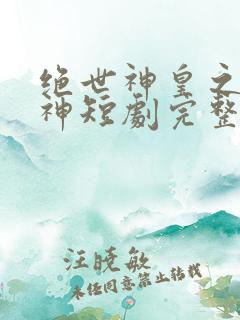 绝世神皇之
神短劇完整
汪晓敏
未经同意禁止转载